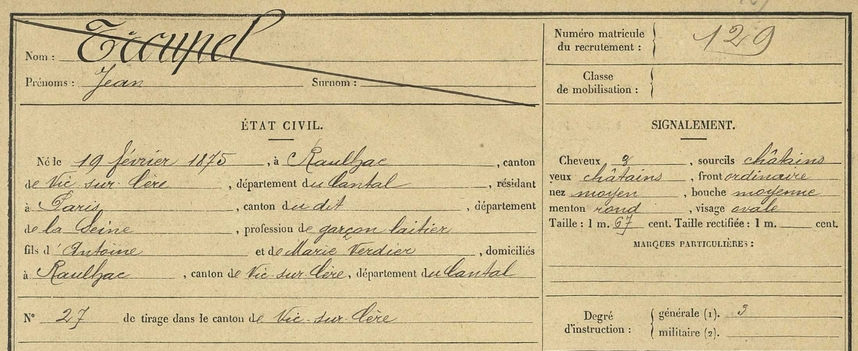 Nom : Trcupel
Prénoms : Jean Surnom :
Numéro matricule du recrutement : 129
Classe de mobilisation :
ÉTAT CIVIL.
Né le 19 février 1875, à Raulhac, canton
de Vic-sur-Cère, département du Cantal, résidant
à Paris, canton du dit, département
de la Seine, profession de garçon laitier
fils d'Antoine et de Marie Verdier, domiciliés
à Raulhac, canton de Vic-sur-Cère, département du Cantal
N° 27 de tirage dans le canton de Vic-sur-Cère
SIGNALEMENT.
Cheveux, sourcils châtains
yeux châtains, front ordinaire
nez moyen, bouche moyenne
menton rond, visage ovale
Taille : 1 m. 67 cent. Taille rectifiée : 1 m. cent.
MARQUES PARTICULIÈRES :
Degré d'instruction :
générale (1). 3
militaire (2).